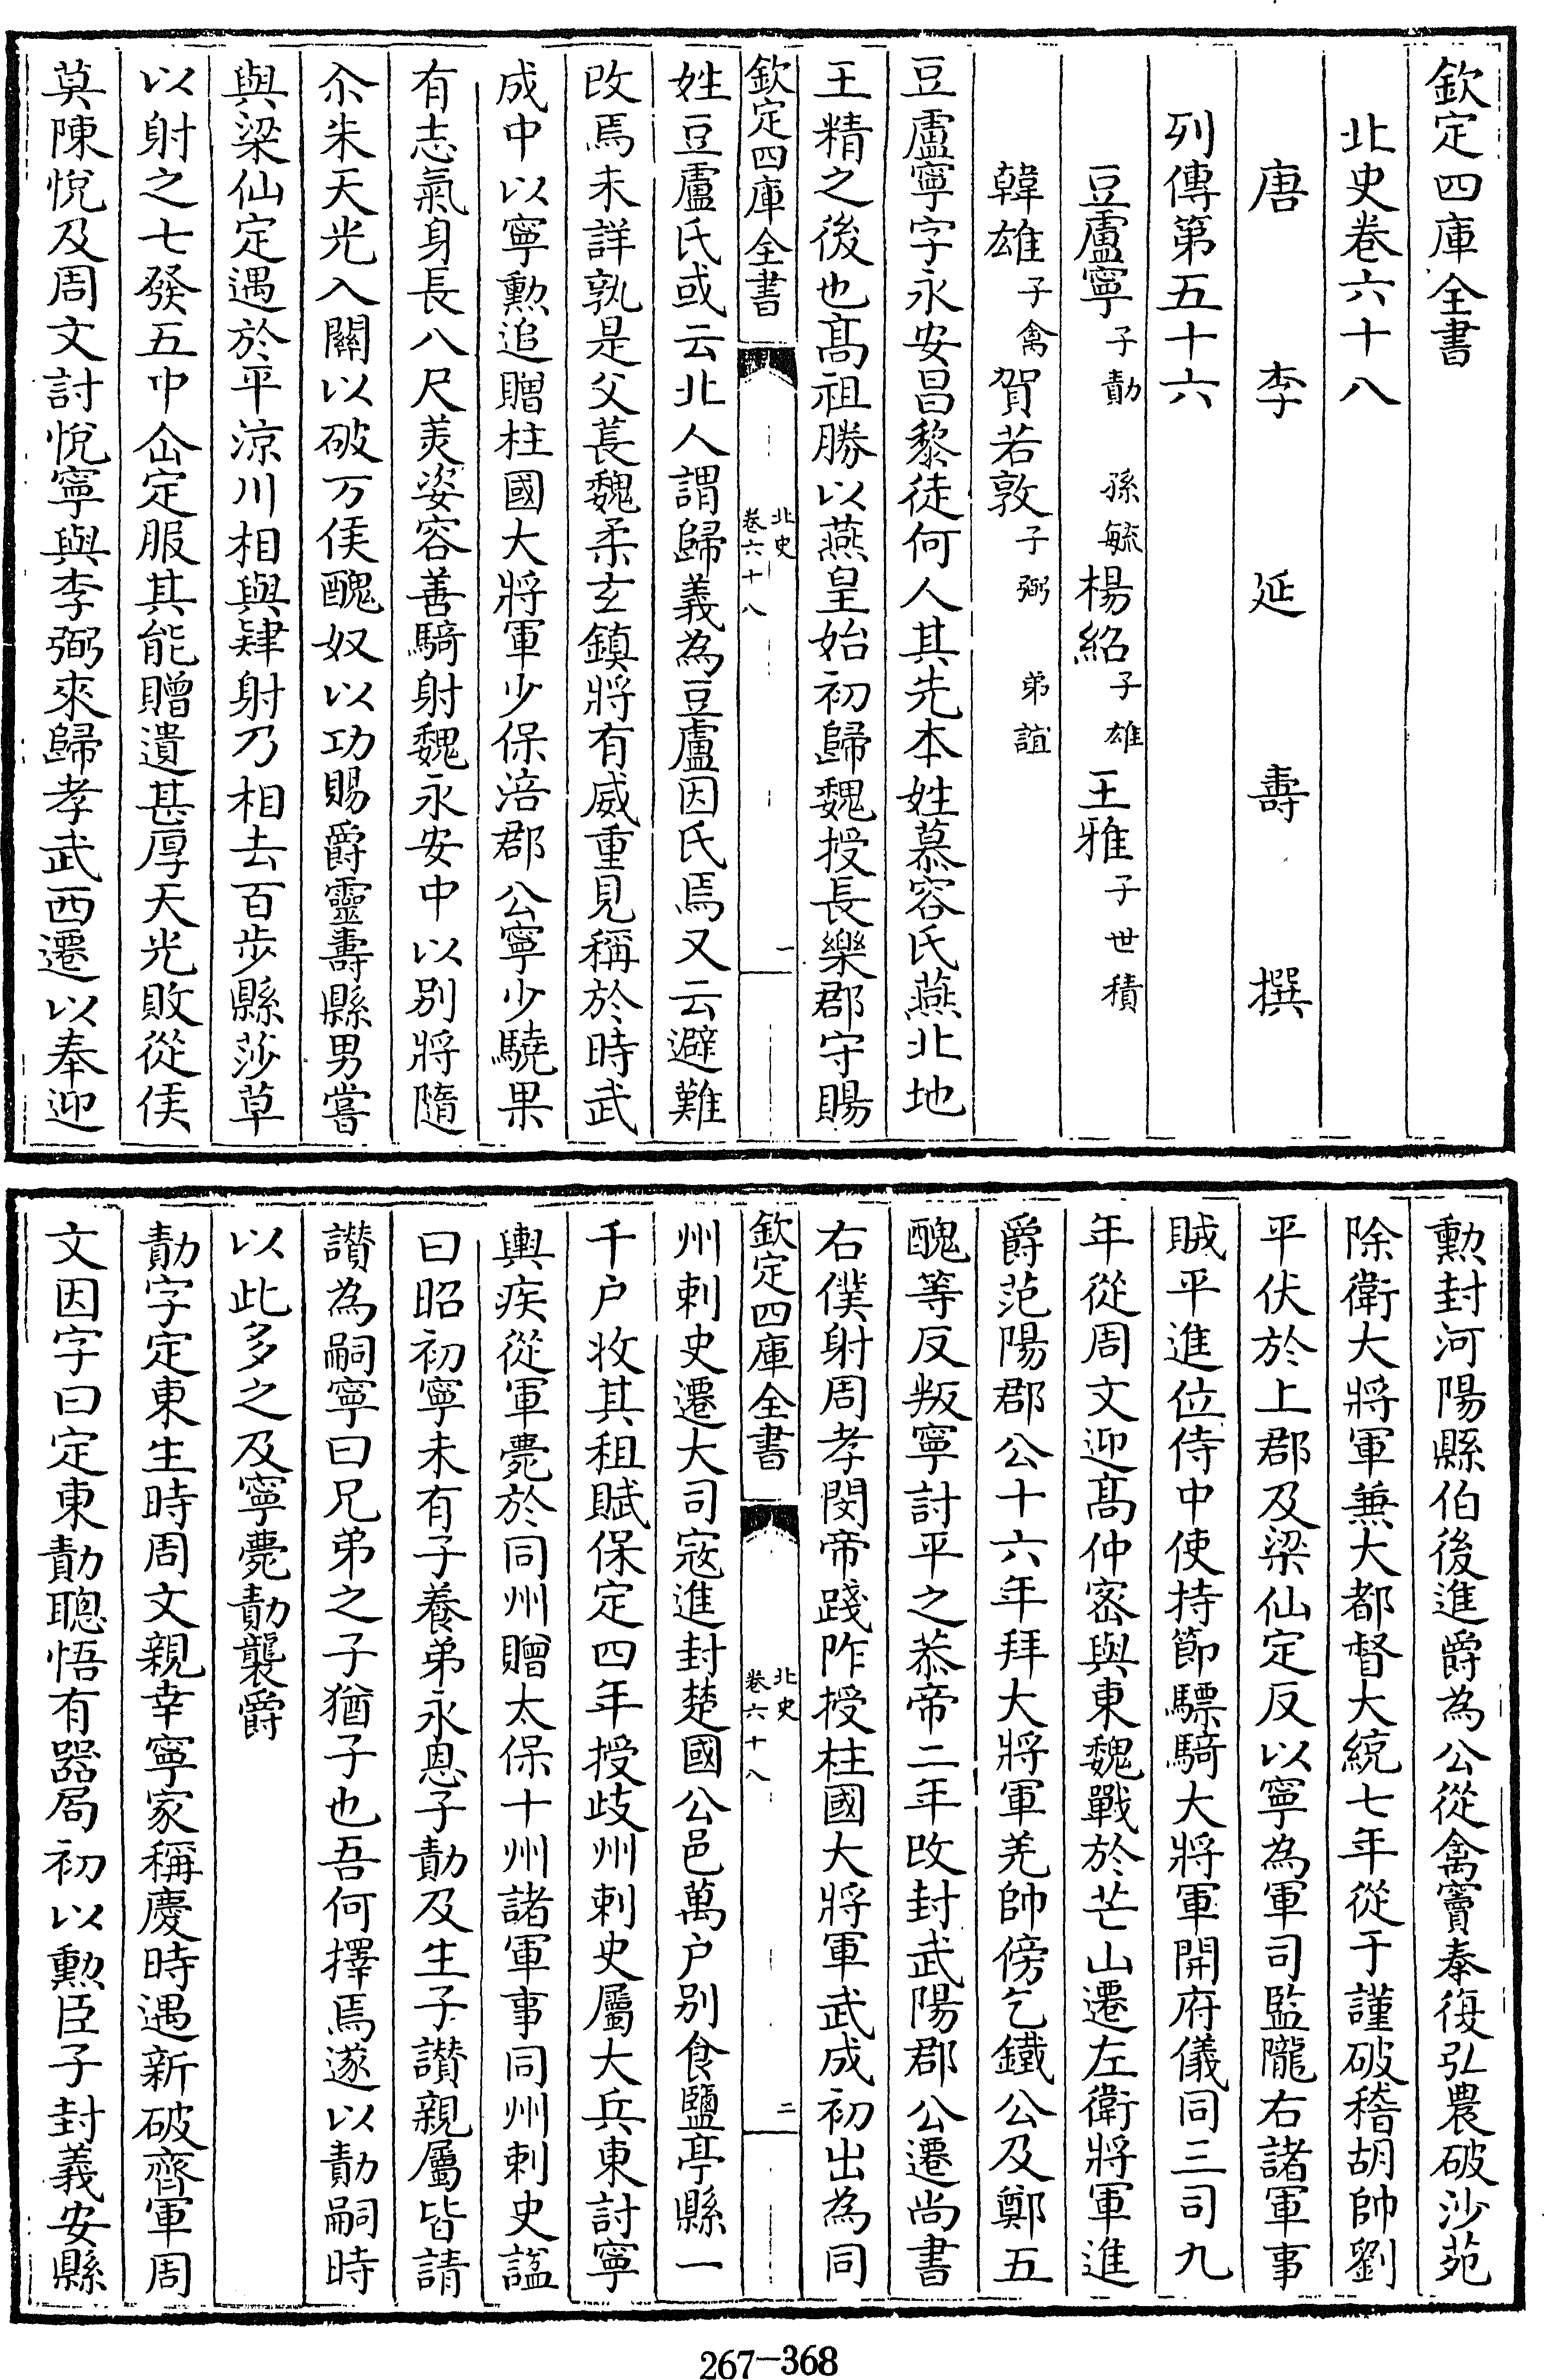 欽定四庫全書
北史卷六十八
唐李延壽撰
列傳第五十六
豆盧寧子勣孫毓楊紹子雄王雅子世積
韓雄子禽賀若敦子弼弟誼
豆盧寧字永安昌黎徒何人其先本姓慕容氏燕北地
王精之後也髙祖勝以燕皇始初歸魏授長樂郡守賜
欽定四庫全書
北史
卷六十八
一
姓豆盧氏或云北人謂歸義為豆盧因氏焉又云避難
改焉未詳孰是父萇魏柔玄鎮將有威重見稱於時武
成中以寧勲追贈柱國大將軍少保涪郡公寧少驍果
有志氣身長八尺美姿容善騎射魏永安中以别將隨
尒朱天光入關以破万俟醜奴以功賜爵靈壽縣男嘗
與梁仙定遇於平涼川相與肄射乃相去百步縣莎草
以射之七發五中仚定服其能贈遺甚厚天光敗從侯
莫陳悅及周文討悅寧與李弼來歸孝武西遷以奉迎
勲封河陽縣伯後進爵為公從禽竇泰復弘農破沙苑
除衛大將軍兼大都督大統七年從于謹破稽胡帥劉
平伏於上郡及梁仙定反以寧為軍司監隴右諸軍事
賊平進位侍中使持節驃騎大將軍開府儀同三司九
年從周文迎髙仲宻與東魏戰於芒山遷左衛將軍進
爵范陽郡公十六年拜大將軍羌帥傍乞鐵公及鄭五
醜等反叛寧討平之恭帝二年改封武陽郡公遷尚書
右僕射周孝閔帝踐阼授柱國大將軍武成初出為同
欽定四庫全書
北史
卷六十八
二
州刺史遷大司寇進封楚國公邑萬户别食鹽亭縣一
千户收其租賦保定四年授歧州刺史屬大兵東討寧
輿疾從軍薨於同州贈太保十州諸軍事同州刺史謚
曰昭初寧未有子養弟永恩子勣及生子讃親屬皆請
讃為嗣寧曰兄弟之子猶子也吾何擇焉遂以勣嗣時
以此多之及寧薨勣襲爵
勣字定東生時周文親幸寧家稱慶時遇新破齊軍周
文因字曰定東勣聰悟有器局初以勲臣子封義安縣
267-368